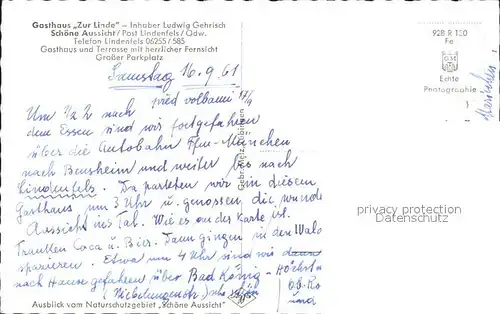 Gasthaus „Zur Linde" – Inhaber Ludwig Gehrisch
Schöne Aussicht / Post Lindenfels / Odw.
Telefon Lindenfels 06255 / 585
Gasthaus und Terrasse mit herrlicher Fernsicht
Großer Parkplatz
928 R 130
Fe
Echte
Photographie
Samstag 16.9.61
Um ½ 2 nach
dem Essen sind wir fortgefahren
über die Autobahn Ffm-München
nach Bensheim und weiter bis nach
Lindenfels. Da parkten wir in diesem
Gasthaus um 3 Uhr u. genossen die
Aussicht ins Tal. Wie es auf der Karte ist.
Tranken Coca u. Bier. Dann gingen in den Wald
spazieren. Etwa um 4 Uhr sind wir dann
nach Hause gefahren über Bad König - Höchst
(Nibelungenstr)
und
Gebr. Metz, Tübingen
privacy protection
Datenschutz
Ausblick vom Naturschutzgebiet „Schöne Aussicht"